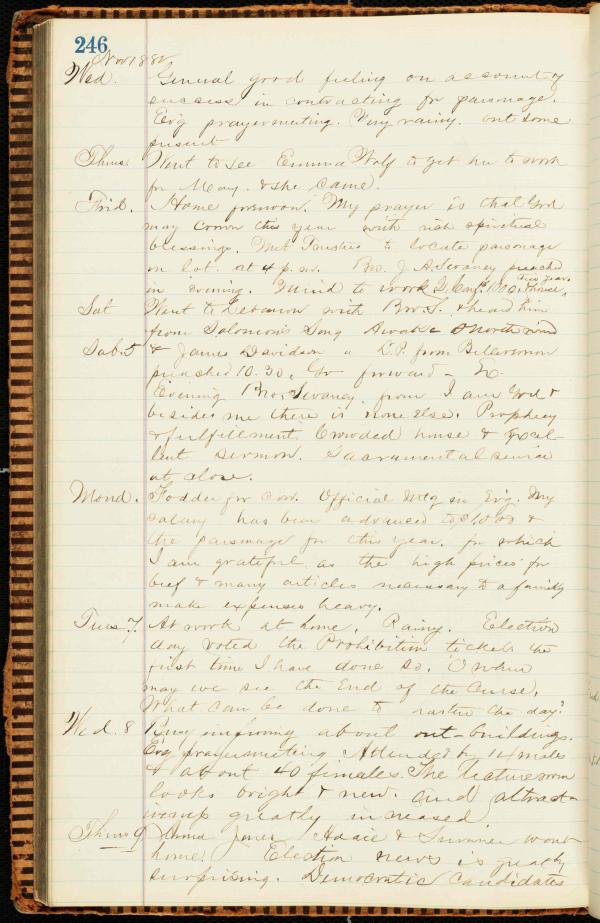 246
Nov 1882
Wed. General good feeling on account of
success in contracting for parsonage.
Ev'g prayermeeting. Very rainy. but some
present
Thurs. Went to see Emma Wolf to get her to work
for Mary. & she came.
Frid. Home forenoon. My prayer is that God
may crown this year with rich spiritual
blessings. Met Trustees to locate parsonage
on lot. at 4 p.m. Bro. J. A. Swaney preached
in evening.
this year
Sat Went to Lebanon with Bro. S. & heard him
from Solomon's Song Awake O North wind
Sab. 5 & James Davidson a L.P. from Bellvernon
preached 10.30. Go forward - Ex.
Evening Bro. Swaney from I am God &
besides me there is none else. Prophecy
& fulfillment. Crowded house & excel-
lent sermon. Sacramental service
at close.
Mond. Fodder for cow. Official Mtg in Ev'g. My
salary has been advanced to $1000 &
the parsonage for this year. for which
I am grateful as the high prices for
beef & many articles necessary to a family
make expenses heavy.
Tues 7. At work at home. Rainy. Election
day voted the Prohibition ticket the
first time I have done so. O when
may we see the End of the Curse.
What can be done to hasten the day?
Wed. 8 Busy about out-buildings.
Ev'g prayermeeting Attended by 14 males
& about 40 females. The lectureroom
looks bright & new. and attract-
iveness greatly increased
Thurs 9 Jones Addie & went
home. Election news is greatly
surprising. Democratic Candidates